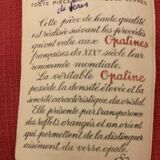 TOUTE PIÈCE
Cette pièce de haute qualité
est réalisée suivant les procédés
qui ont valu aux Opalines
françaises du XIXe siècle leur
renommée mondiale.
La véritable Opaline
possède la densité élevée et la
sonorité caractéristique du cristal.
Elle présente par transparence
des reflets orangés et un orient
qui permettent de la distinguer
aisément du verre opale.